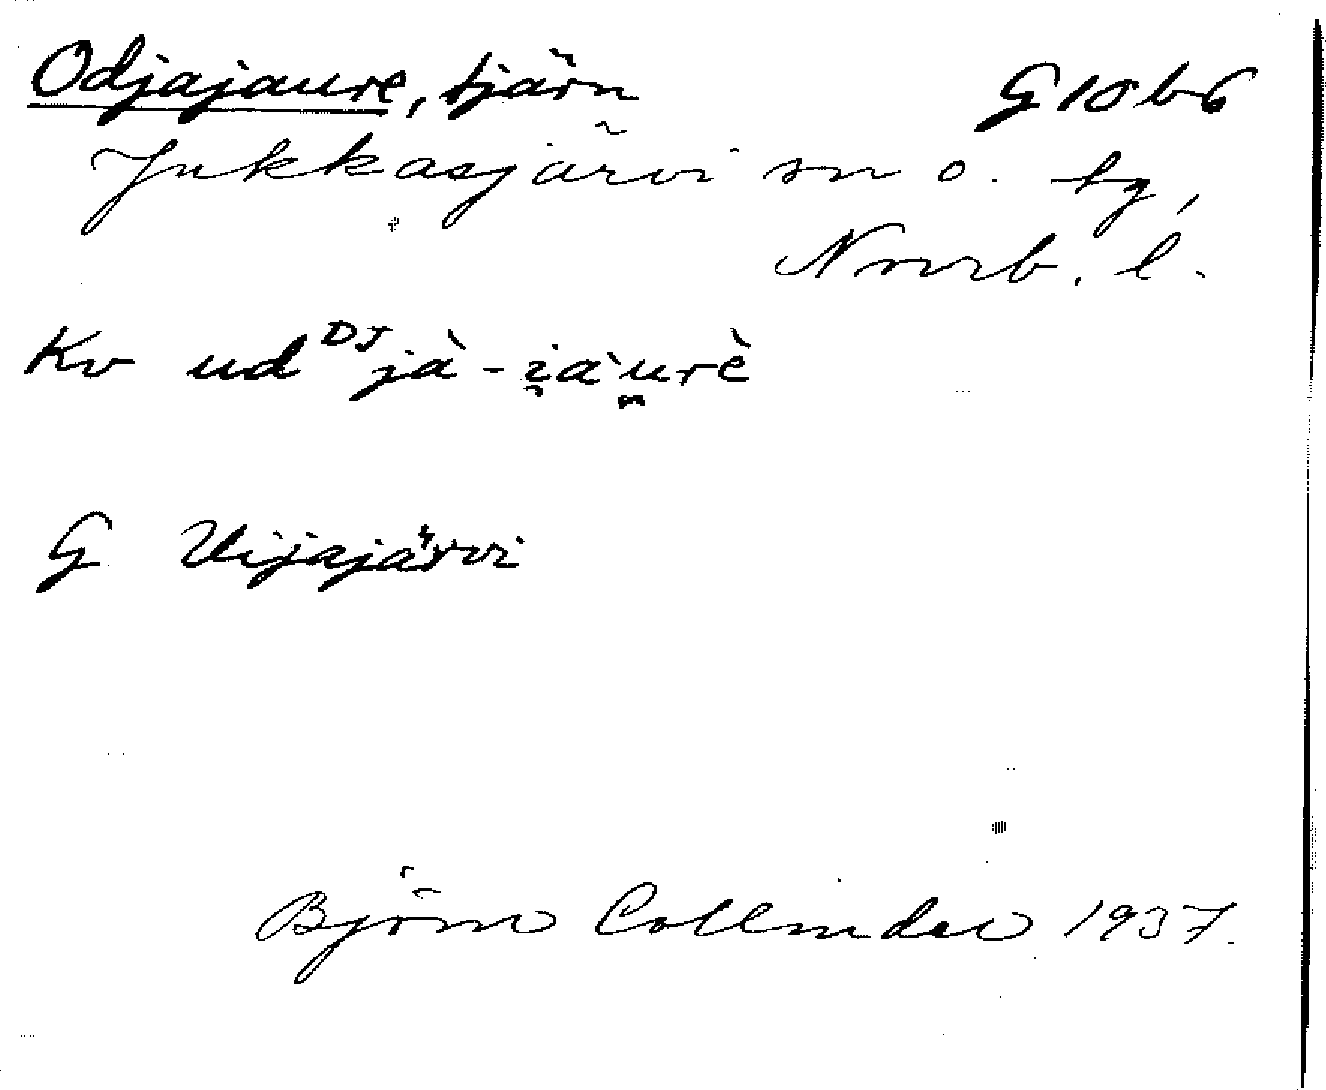 Odjajaure, tjärn G10b6
Jukkasjärvi sn o. tg,
Norrb. l.
Kv ud ᴰᴶjà - i̯àu̯rè
G Uijajärvi
Björn Collinder 1937.